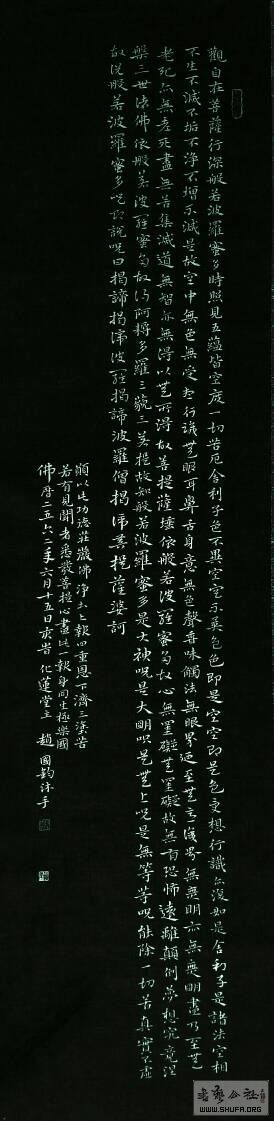 觀自在菩薩行深般若波羅蜜多時照見五蘊皆空度一切苦厄舍利子色不異空空不異色色即是空空即是色受想行識亦復如是舍利子是諸法空相
不生不滅不垢不淨不增不減是故空中無色無受想行識無眼耳鼻舌身意無色聲香味觸法無眼界乃至無意識界無無明亦無無明盡乃至無
老死亦無老死盡無苦集滅道無智亦無得以無所得故菩提薩埵依般若波羅蜜多故心無罣礙無罣礙故無有恐怖遠離顛倒夢想究竟涅
槃三世諸佛依般若波羅蜜多故得阿耨多羅三藐三菩提故知般若波羅蜜多是大神咒是大明咒是無上咒是無等等咒能除一切苦真實不虛
故說般若波羅蜜多咒即說咒曰揭諦揭諦波羅揭諦波羅僧揭諦菩提薩婆訶
願以此功德莊嚴佛淨土上報四重恩下濟三塗苦
若有見聞者悉發菩提心盡此一報身同生極樂國
佛曆二五六二年六月十五日 化蓮堂主 趙國鈞沐手
書法公社
WWW.SHUFA.ORG